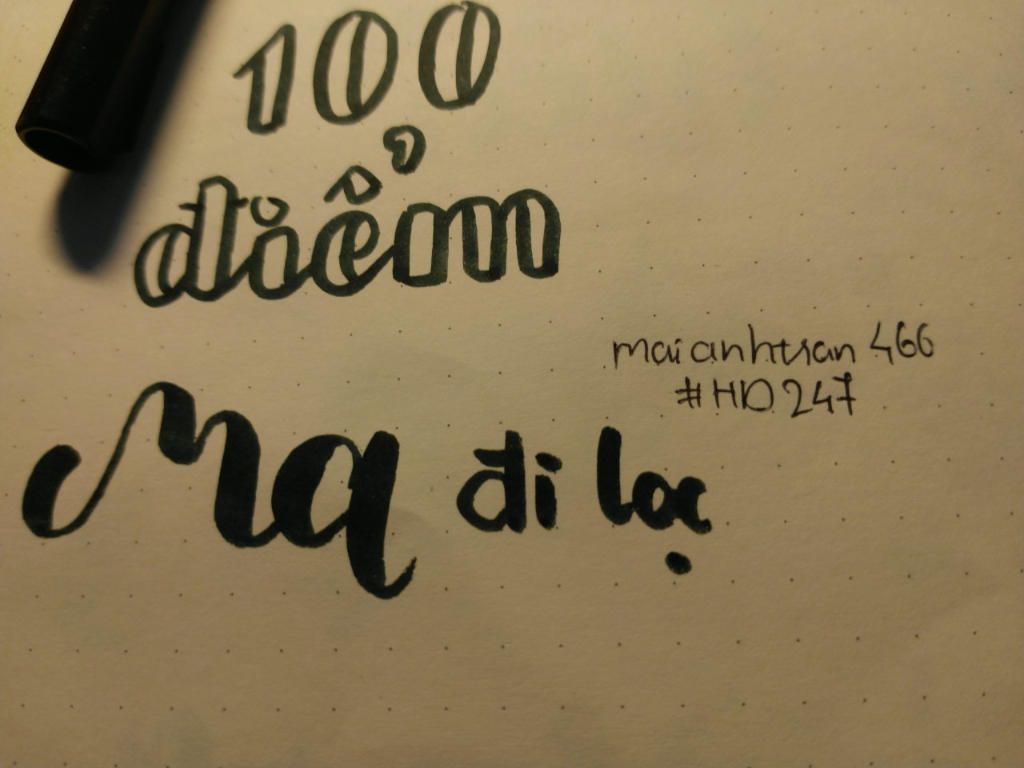 100
điểm
maianhtran466
#HD247
Ma đi lạc